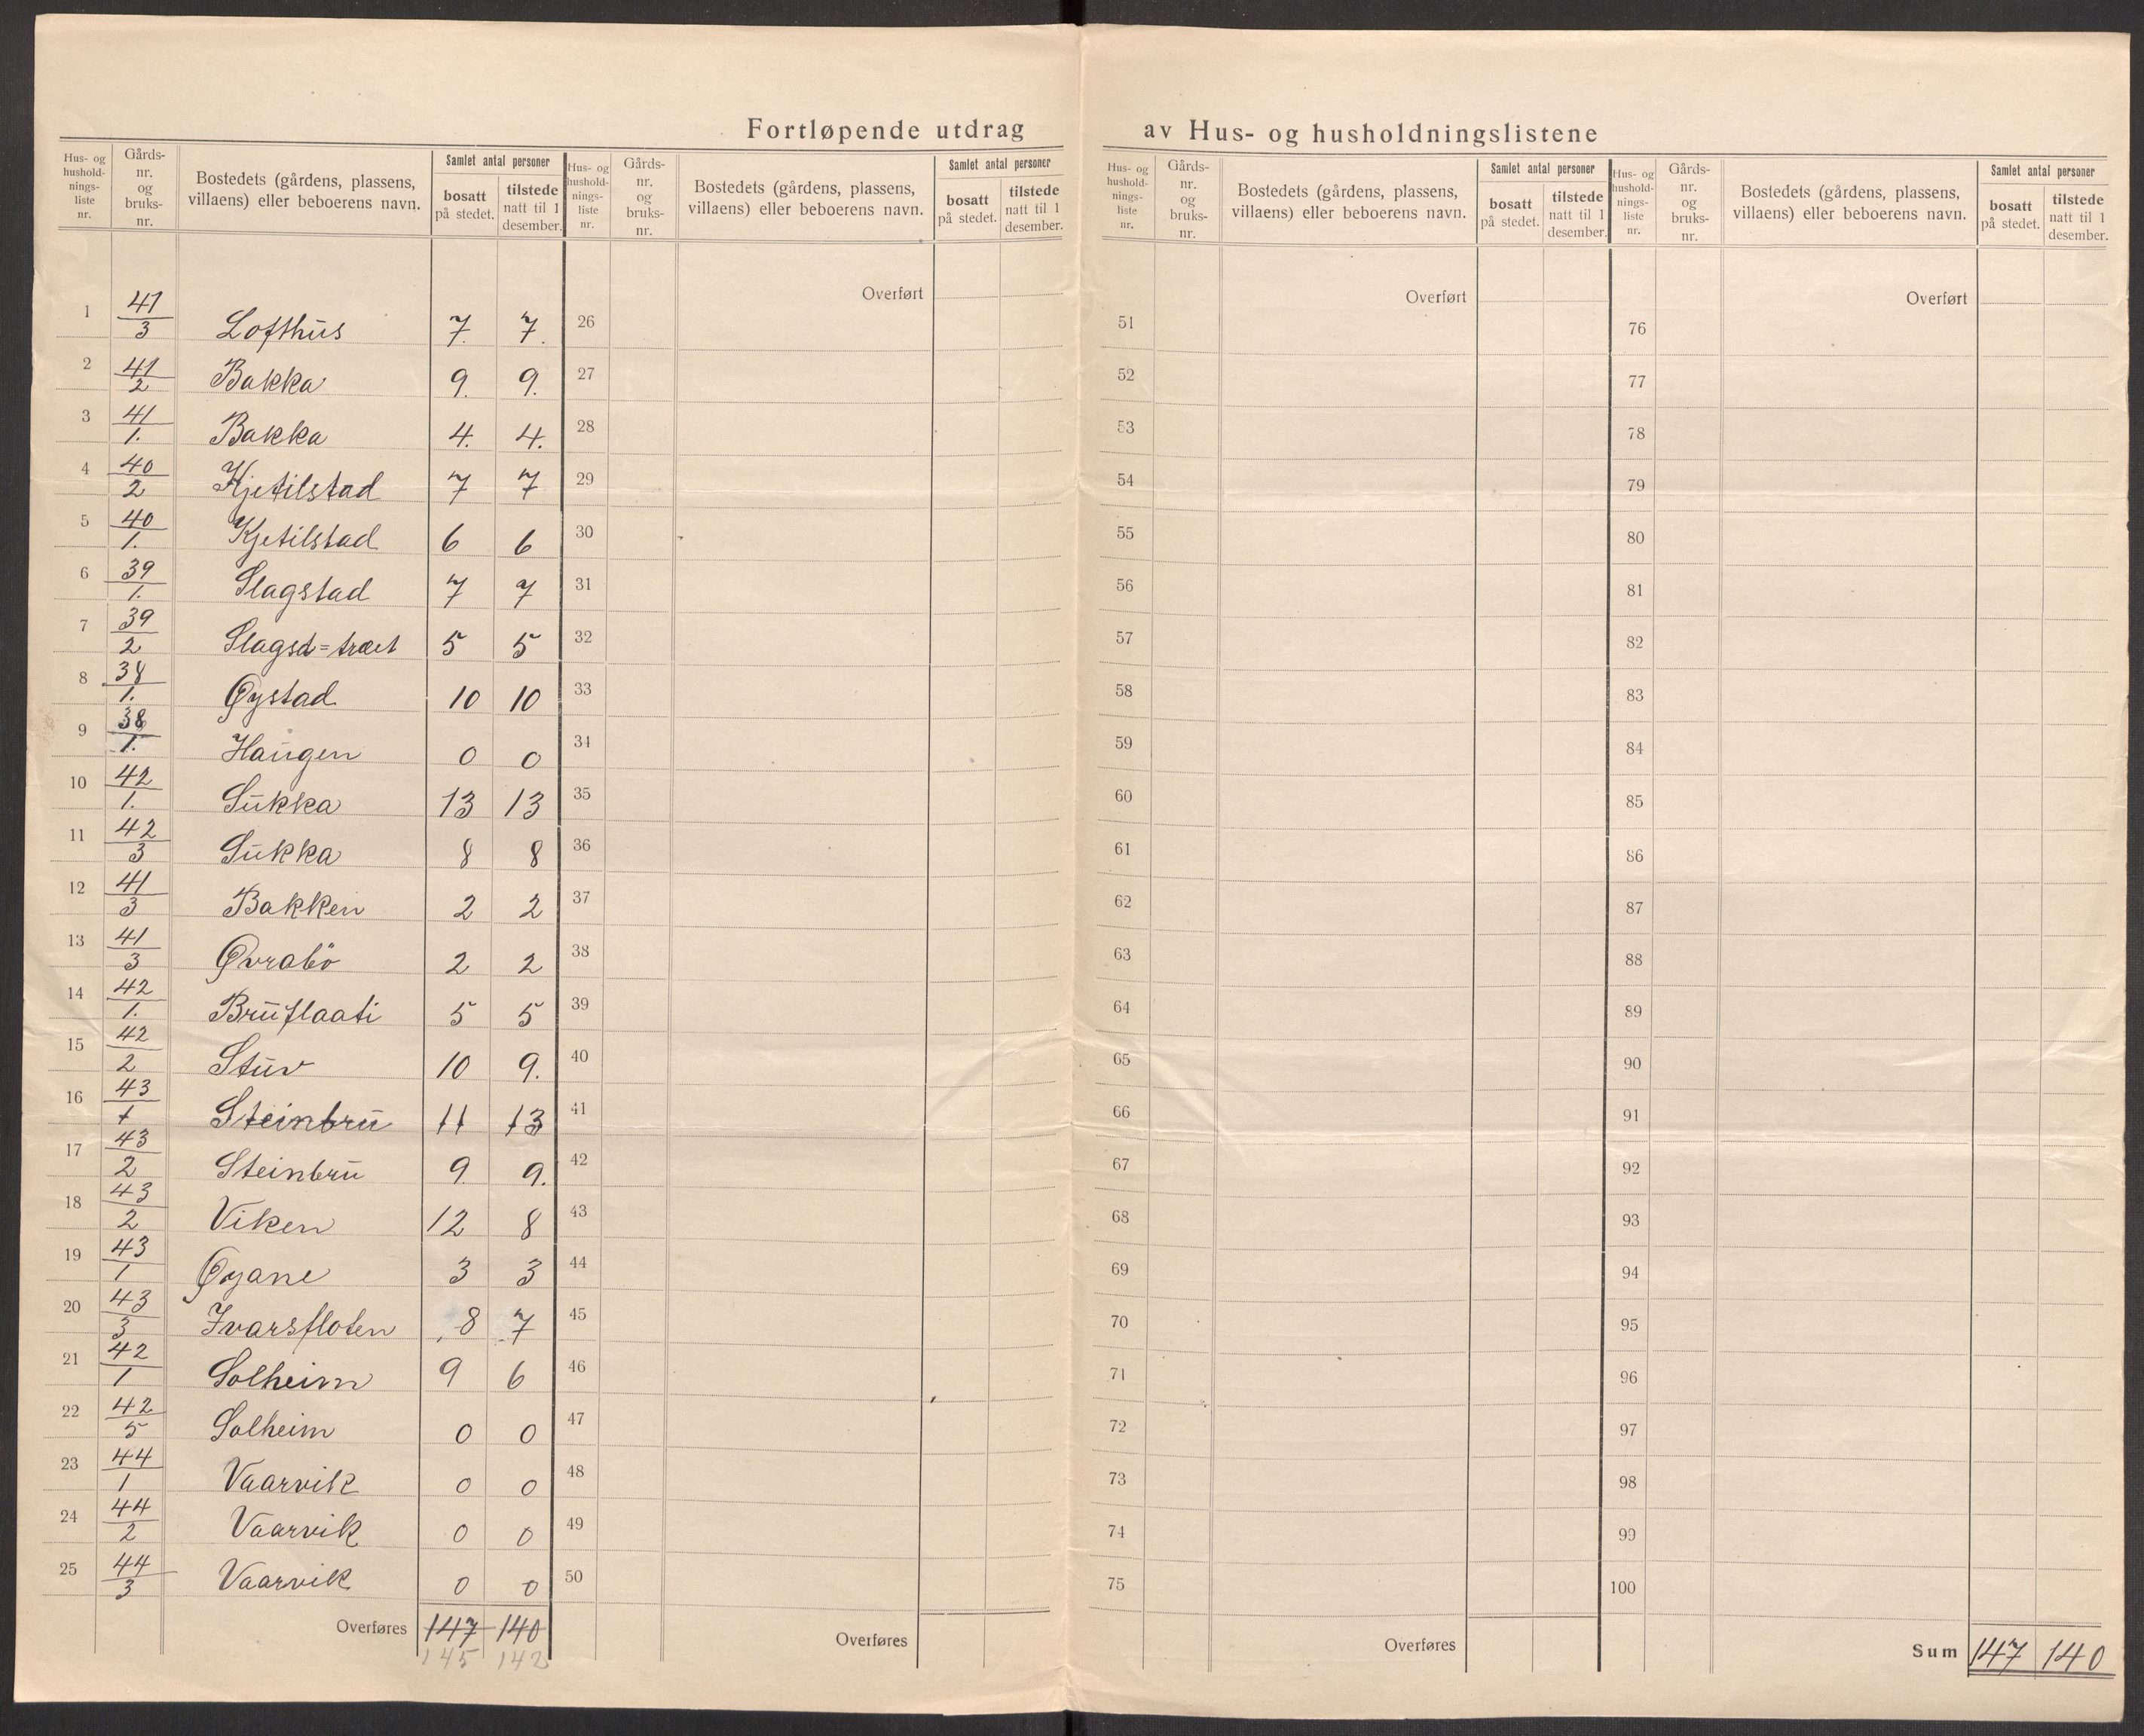 Fortløpende utdrag av Hus- og husholdningslistene
Hus- og husholdnings-liste nr. | Gårds-nr. og bruks-nr. | Bostedets (gårdens, plassens, villaens) eller beboerens navn. | Samlet antal personer | bosatt på stedet. | tilstede natt til 1 desember.
1 41/3 Lofthus 7. 7.
2 41/2 Bakka 9. 9.
3 41/1. Bakka 4. 4.
4 40/2 Kjetilstad 7 7
5 40/1. Kjetilstad 6 6
6 39/1. Slagstad 7 7
7 39/2 Slagsd=træet 5 5
8 38/1. Øystad 10 10
9 38/1. Haugen 0 0
10 42/1. Sukka 13 13
11 42/3 Sukka 8 8
12 41/3 Bakken 2 2
13 41/3 Øvrabö 2 2
14 42/1. Bruflaati 5 5
15 42/2 Stuv 10 9.
16 43/1 Steinbru 11 13
17 43/2 Steinbru 9 9.
18 43/2 Viken 12 8
19 43/1 Øyane 3 3
20 43/3 Ivarsfloten 8 7
21 42/1 Solheim 9 6
22 42/5 Solheim 0 0
23 44/1 Vaarvik 0 0
24 44/2 Vaarvik 0 0
25 44/3 Vaarvik 0 0
Overføres 147 140
145 142
Hus- og husholdnings-liste nr. | Gårds-nr. og bruks-nr. | Bostedets (gårdens, plassens, villaens) eller beboerens navn. | Samlet antal personer | bosatt på stedet. | tilstede natt til 1 desember.
Overført
26
27
28
29
30
31
32
33
34
35
36
37
38
39
40
41
42
43
44
45
46
47
48
49
50
Overføres
Hus- og husholdnings-liste nr. | Gårds-nr. og bruks-nr. | Bostedets (gårdens, plassens, villaens) eller beboerens navn. | Samlet antal personer | bosatt på stedet. | tilstede natt til 1 desember.
Overført
51
52
53
54
55
56
57
58
59
60
61
62
63
64
65
66
67
68
69
70
71
72
73
74
75
Overføres
Hus- og husholdnings-liste nr. | Gårds-nr. og bruks-nr. | Bostedets (gårdens, plassens, villaens) eller beboerens navn. | Samlet antal personer | bosatt på stedet. | tilstede natt til 1 desember.
Overført
76
77
78
79
80
81
82
83
84
85
86
87
88
89
90
91
92
93
94
95
96
97
98
99
100
Sum 147 140